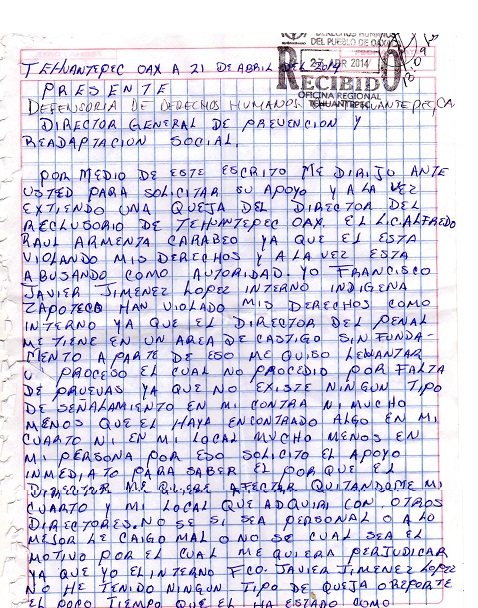 DERECHOS HUMANOS
DEL PUEBLO DE OAXA
ABR 2014
RECIBIDO
OFICINA REGIONAL
TEHUANTEPEC
TEHUANTEPEC OAX A 21 DE ABRIL DEL
PRESENTE
DEFENSORIA DE DERECHOS HUMANOS TEHUANTEPEC, OA
DIRECTOR GENERAL DE PREVENCION Y
READAPTACION SOCIAL.
POR MEDIO DE ESTE ESCRITO ME DIRIJO ANTE
USTED PARA SOLICITAR SU APOYO Y A LA VEZ
EXTIENDO UNA QUEJA DEL DIRECTOR DEL
RECLUSORIO DE TEHUANTEPEC OAX. EL LIC. ALFREDO
RAUL ARMENTA CARABEO YA QUE EL ESTA
VIOLANDO MIS DERECHOS Y A LA VEZ ESTA
ABUSANDO COMO AUTORIDAD. YO FRANCISCO
JAVIER JIMENEZ LOPEZ INTERNO INDIGENA
ZAPOTECO HAN VIOLADO MIS DERECHOS COMO
INTERNO YA QUE EL DIRECTOR DEL PENAL
ME TIENE EN UN AREA DE CASTIGO SIN FUNDA-
MENTO APARTE DE ESO ME QUISO LEVANTAR
U PROCESO EL CUAL NO PROCEDIO POR FALTA
DE PRUEVAS YA QUE NO EXISTE NINGUN TIPO
DE SEÑALAMIENTO EN MI CONTRA NI MUCHO
MENOS QUE EL HAYA ENCONTRADO ALGO EN MI
CUARTO NI EN MI LOCAL MUCHO MENOS EN
MI PERSONA POR ESO SOLICITO EL APOYO
INMEDIATO PARA SABER EL POR QUE EL
DIRECTOR ME QUIERE AFECTAR QUITANDOME MI
CUARTO Y MI LOCAL QUE ADQUIRI CON OTROS
DIRECTORES. NO SE SI SEA PERSONAL O A LO
MEJOR LE CAIGO MAL O NO SE CUAL SEA EL
MOTIVO POR EL CUAL ME QUIERA PERJUDICAR
YA QUE YO EL INTERNO FCO. JAVIER JIMENEZ LOPEZ
NO HE TENIDO NINGUN TIPO DE QUEJA O REPORTE
EL POCO TIEMPO QUE EL HA ESTADO COMO